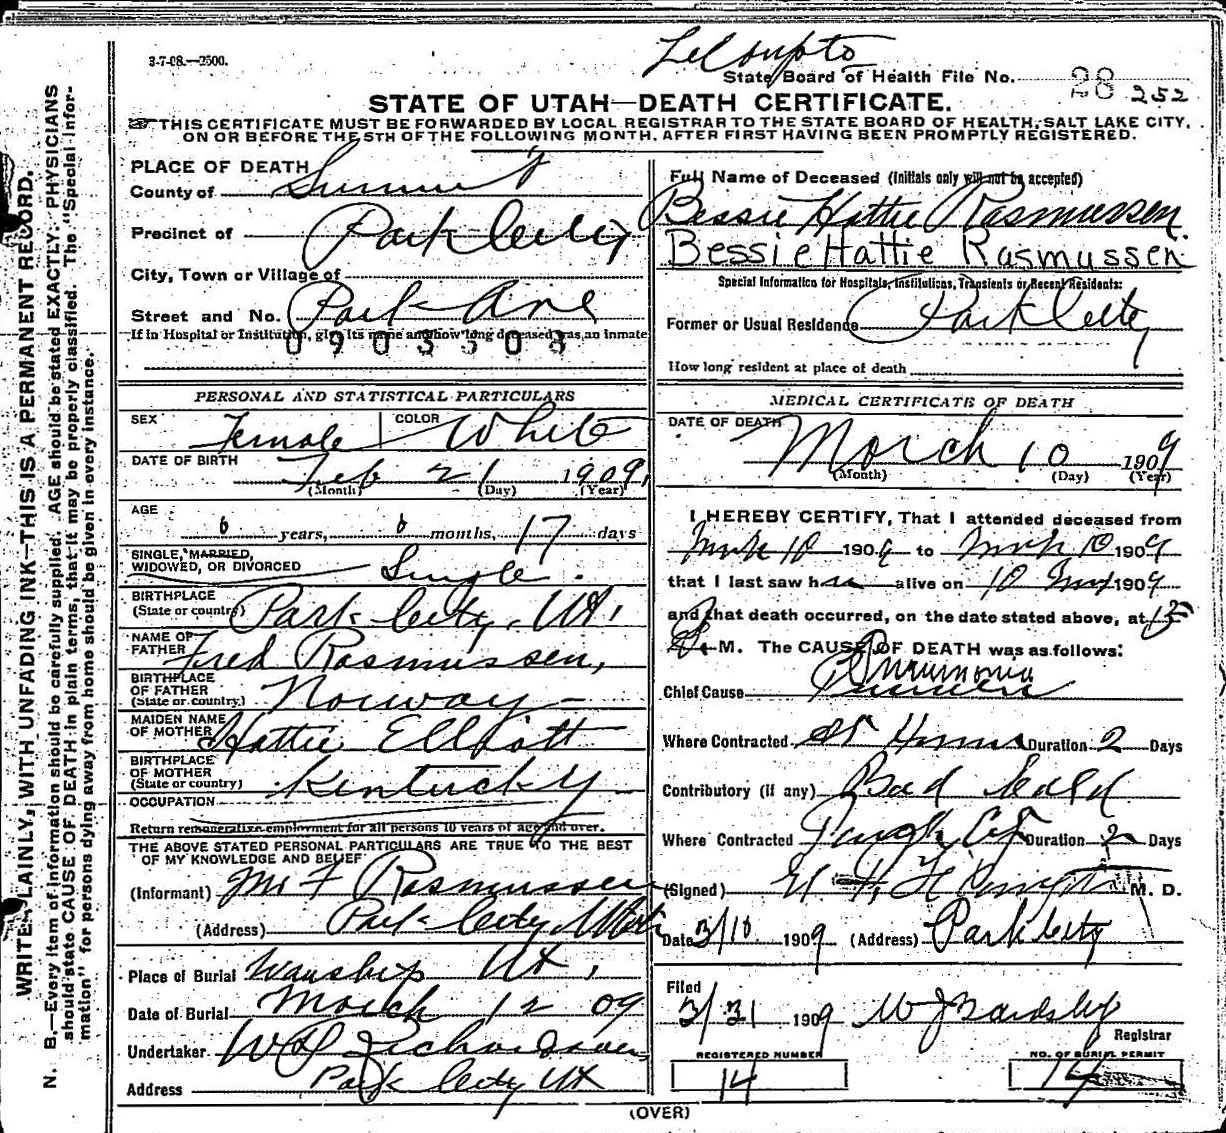 3-7-08.—2500.
LeCompte
State Board of Health File No. 28 252
STATE OF UTAH—DEATH CERTIFICATE.
THIS CERTIFICATE MUST BE FORWARDED BY LOCAL REGISTRAR TO THE STATE BOARD OF HEALTH, SALT LAKE CITY,
ON OR BEFORE THE 5TH OF THE FOLLOWING MONTH, AFTER FIRST HAVING BEEN PROMPTLY REGISTERED.
WRITE PLAINLY, WITH UNFADING INK—THIS IS A PERMANENT RECORD.
N. B.—Every item of information should be carefully supplied. AGE should be stated EXACTLY. PHYSICIANS
should state CAUSE OF DEATH in plain terms, that it may be properly classified. The "Special Infor-
mation" for persons dying away from home should be given in every instance.
PLACE OF DEATH
County of Summit
Precinct of Park City
City, Town or Village of
Street and No. Park Ave
If in Hospital or Institution, give its name and how long deceased was an inmate
0903308
PERSONAL AND STATISTICAL PARTICULARS
SEX Female COLOR White
DATE OF BIRTH Feb 21 1909,
(Month) (Day) (Year)
AGE
0 years, 0 months, 17 days
SINGLE, MARRIED,
WIDOWED, OR DIVORCED Single.
BIRTHPLACE
(State or country) Park City, Ut,
NAME OF
FATHER Fred Rasmussen,
BIRTHPLACE
OF FATHER
(State or country) Norway—
MAIDEN NAME
OF MOTHER Hattie Elliott
BIRTHPLACE
OF MOTHER
(State or country) Kentucky
OCCUPATION
Return remunerative employment for all persons 10 years of age and over.
THE ABOVE STATED PERSONAL PARTICULARS ARE TRUE TO THE BEST
OF MY KNOWLEDGE AND BELIEF
(Informant) Mr F Rasmussen
(Address) Park City, Utah
Place of Burial Wanship Ut,
Date of Burial March 12 09
Undertaker W
Address Park City Ut
Full Name of Deceased (Initials only will not be accepted)
Bessie Hattie Rasmussen.
Bessie Hattie Rasmussen
Special Information for Hospitals, Institutions, Transients or Recent Residents:
Former or Usual Residence Park City
How long resident at place of death
MEDICAL CERTIFICATE OF DEATH
DATE OF DEATH March 10 1909
(Month) (Day) (Year)
I HEREBY CERTIFY, That I attended deceased from
March 10 1909 to March 10 1909
that I last saw her alive on 10 1909
and that death occurred, on the date stated above, at
M. The CAUSE OF DEATH was as follows:
Pneumonia
Chief Cause
Where Contracted At Home Duration 2 Days
Contributory (if any) Bad Cold
Where Contracted Duration 2 Days
(Signed) M. D.
Date 3/10 1909 (Address) Park City
Filed
3/31 1909 W J Bardsley
Registrar
REGISTERED NUMBER
14
NO. OF BURIAL PERMIT
14
(OVER)